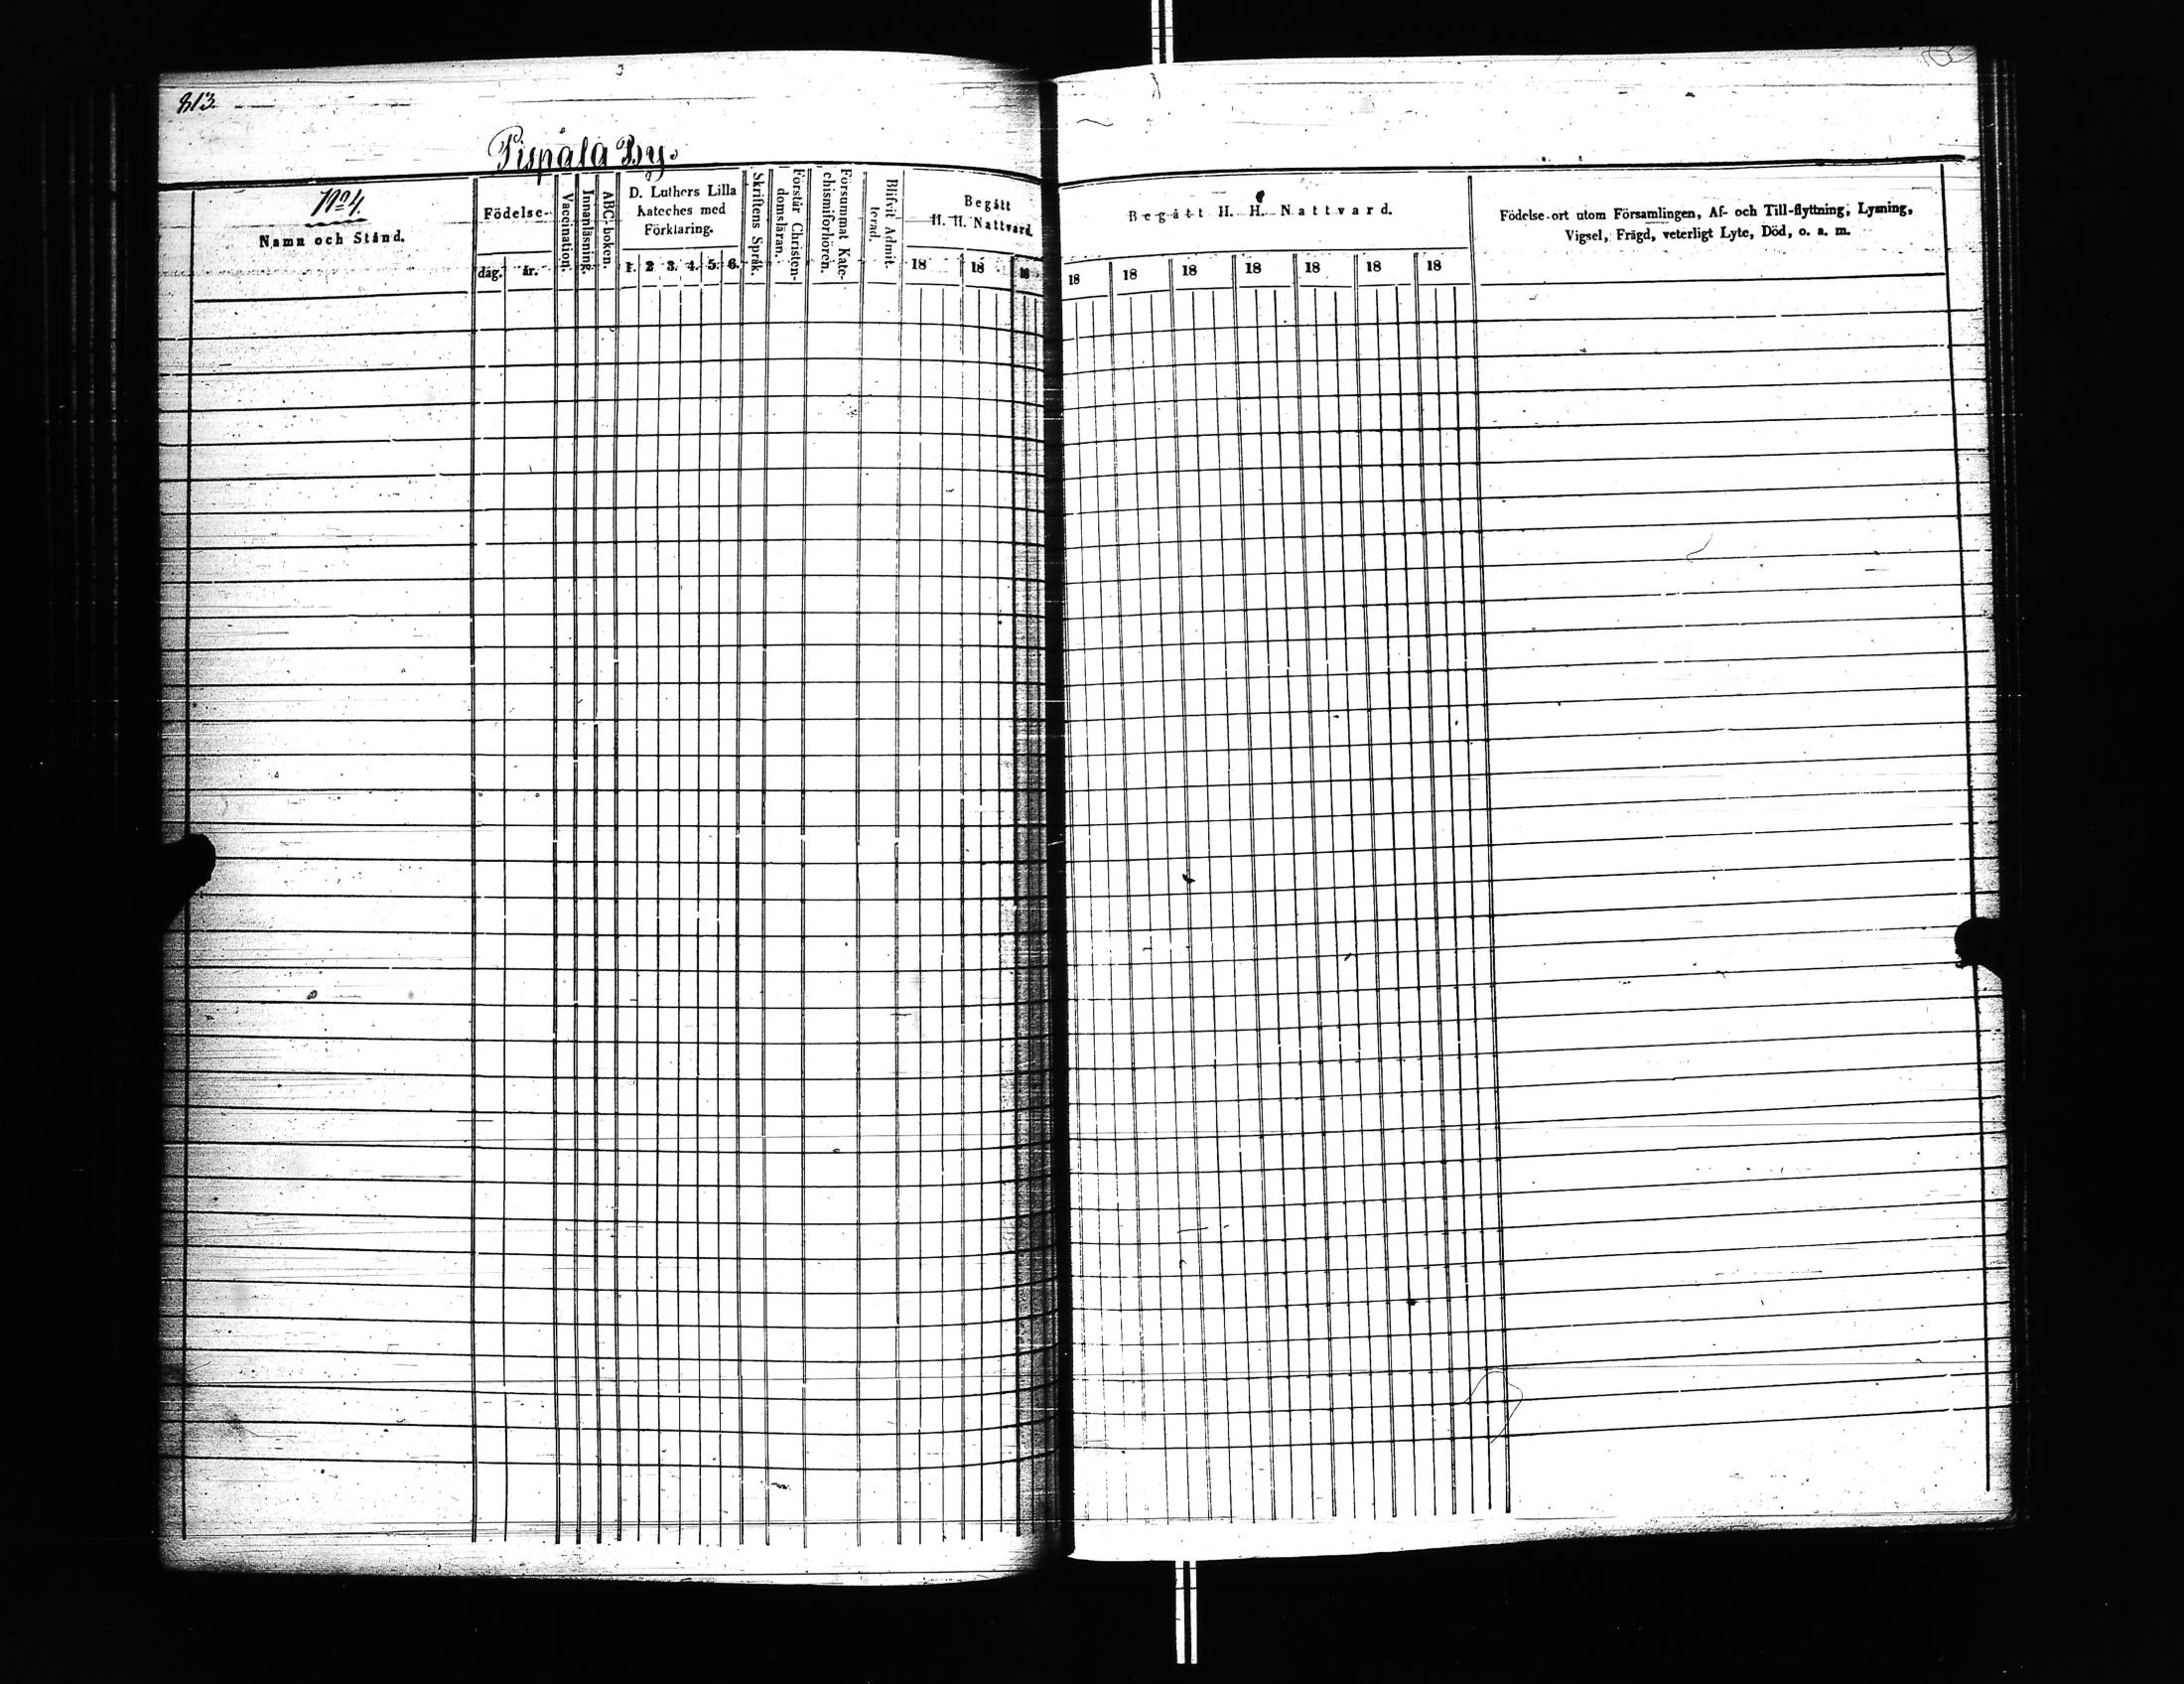 813.
Pispala By.
No 4.
Namn och Stånd.
Födelse-
dag. år.
Vaccination.
Innanläsning.
ABC-boken.
D. Luthers Lilla
Kateches med
Förklaring.
1. 2. 3. 4. 5. 6.
Skriftens Språk.
Förstår Christen-
domsläran.
Försummat Kate-
chismiförhören.
Blifvit Admit-
terad.
Begått
H. H. Nattvard.
18 18 18
Begått H. H. Nattvard.
18 18 18 18 18 18 18
Födelse-ort utom Församlingen, Af- och Till-flyttning, Lysning,
Vigsel, Frägd, veterligt Lyte, Död, o. s. m.